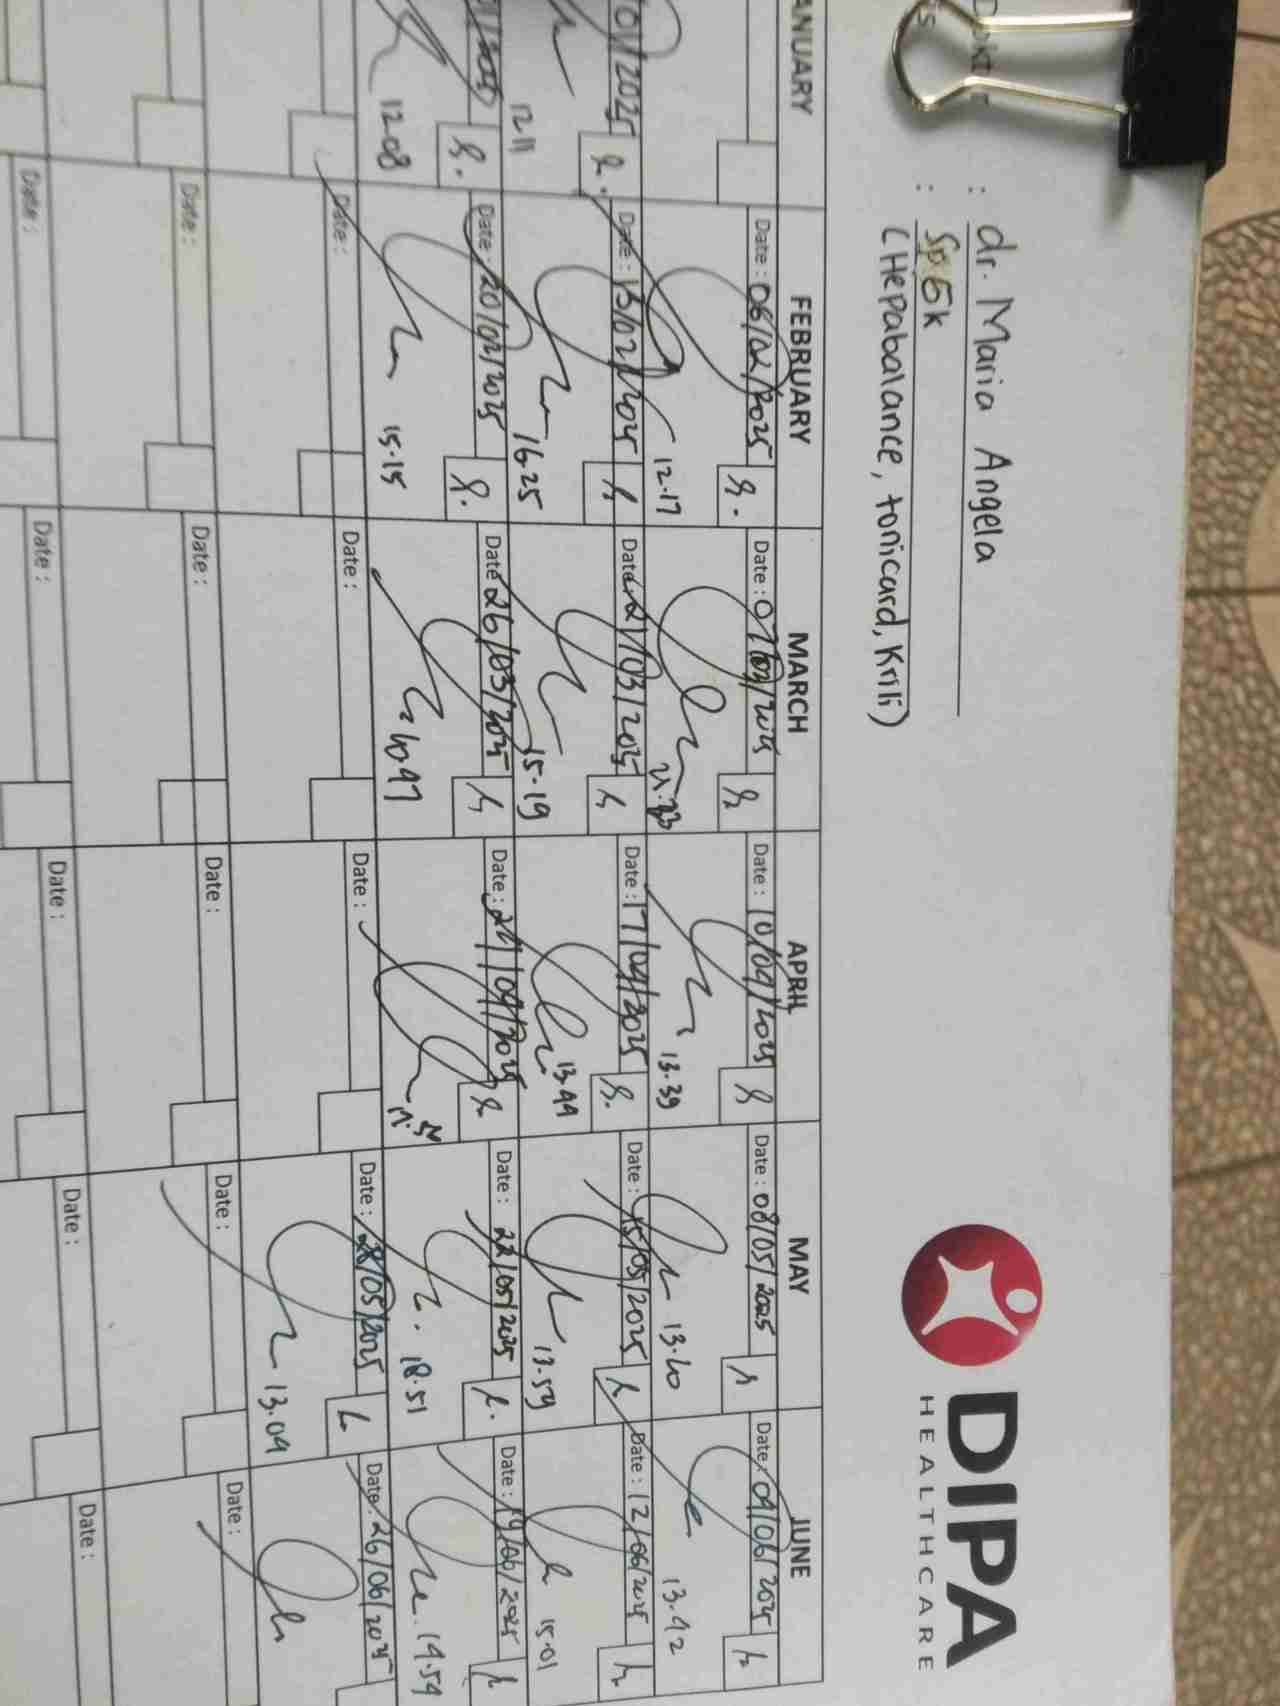 DIPA
HEALTHCARE
: dr. Maria Angela
: Sp.GK
(Hepabalance, tonicard, Krili)
ANUARY FEBRUARY MARCH APRIL MAY JUNE
Date : 06/02/2025 Date : 07/03/2025 Date : 10/04/2025 Date : 08/05/2025 Date : 04/06/2025
12.17 13.39 13.40 13.42
01/2025 Date : 13/02/2025 Date : 21/03/2025 Date : 17/04/2025 Date : 15/05/2025 Date : 12/06/2025
12.11 16.25 15.19 13.44 13.59 15.01
Date : 20/02/2025 Date : 26/03/2025 Date : 24/04/2025 Date : 22/05/2025 Date : 19/06/2025
12.08 15.15 18.51 14.54
Date : Date : Date : Date : 28/05/2025 Date : 26/06/2025
13.04
Date : Date : Date : Date : Date :
Date : Date : Date : Date : Date :